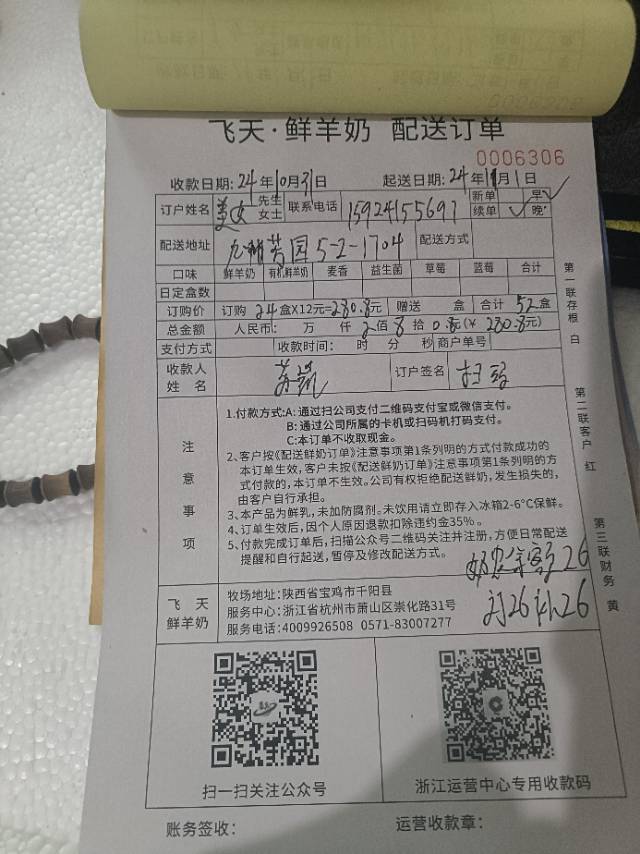 飞天·鲜羊奶 配送订单
0006306
收款日期: 24年10月31日 起送日期: 24年11月1日
订户姓名 先生 女士 联系电话 15924155697 新单 早
续单 晚
配送地址 园5-2-1704 配送方式
口味 鲜羊奶 有机鲜羊奶 麦香 益生菌 草莓 蓝莓 合计
日定盒数
订购价 订购 24盒X12元=280.8元 赠送 盒 合计 52盒
总金额 人民币: 万 仟 2佰 8拾 0.8元(¥ 280.8元)
支付方式 收款时间: 时 分 秒 商户单号
收款人
姓 名 订户签名 扫码
注意事项
1.付款方式:A: 通过扫公司支付二维码支付宝或微信支付。
B: 通过公司所属的卡机或扫码机打码支付。
C:本订单不收取现金。
2、客户按《配送鲜奶订单》注意事项第1条列明的方式付款成功的
本订单生效，客户未按《配送鲜奶订单》注意事项第1条列明的方
式付款的，本订单不生效。公司有权拒绝配送鲜奶，发生损失的，
由客户自行承担。
3、本产品为鲜乳，未加防腐剂。未饮用请立即存入冰箱2-6°C保鲜。
4、订单生效后，因个人原因退款扣除违约金35%。
5、付款完成订单后，扫描公众号二维码关注并注册，方便日常配送
提醒和自行起送，暂停及修改配送方式。
26
26补26
飞 天
鲜羊奶
牧场地址:陕西省宝鸡市千阳县
服务中心:浙江省杭州市萧山区崇化路31号
服务电话:4009926508 0571-83007277
扫一扫关注公众号 浙江运营中心专用收款码
账务签收: 运营收款章:
第一联存根 白
第二联客户 红
第三联财务 黄